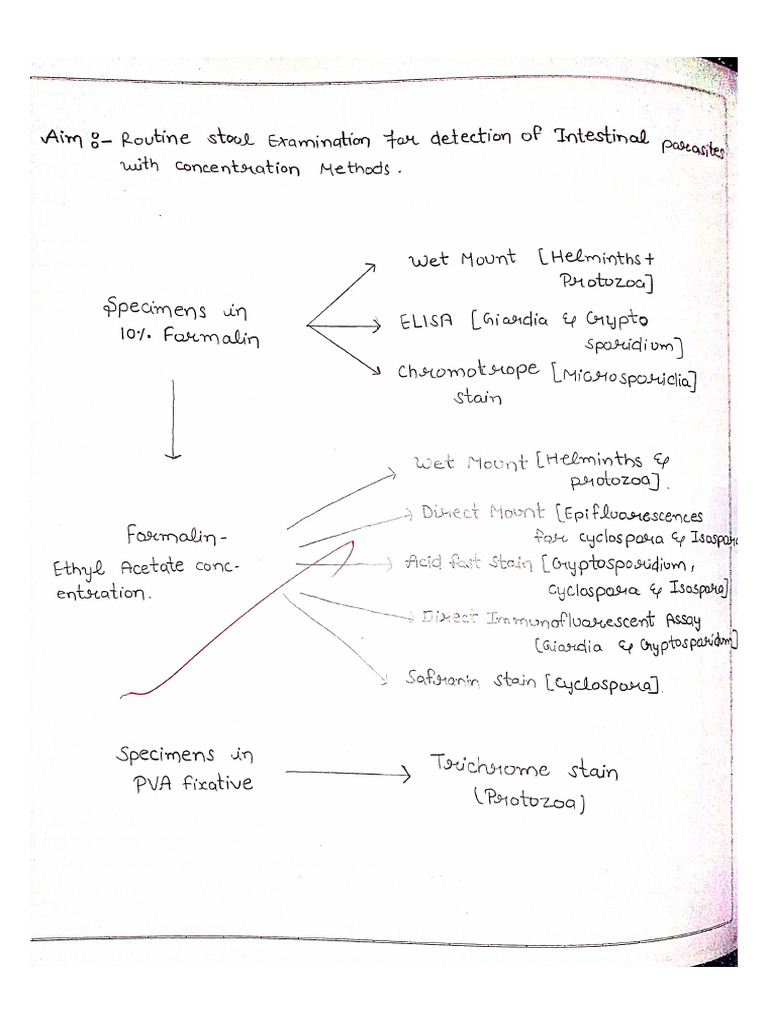 Aim :- Routine stool Examination for detection of Intestinal parasites
with concentration Methods.
Wet Mount [Helminths +
Protozoa]
Specimens in
10% Formalin
ELISA [Giardia & Crypto
sporidium]
Chromotrope [Microsporidia]
stain
Wet Mount [Helminths &
protozoa].
Direct Mount [Epifluorescences
for cyclospora & Isospora
Formalin-
Ethyl Acetate conc-
entration.
Acid fast stain [Cryptosporidium,
Cyclospora & Isospora]
Direct Immunofluorescent Assay
[Giardia & Cryptosporidum]
Safranin stain [Cyclospora].
Specimens in
PVA fixative
Trichrome stain
(Protozoa)